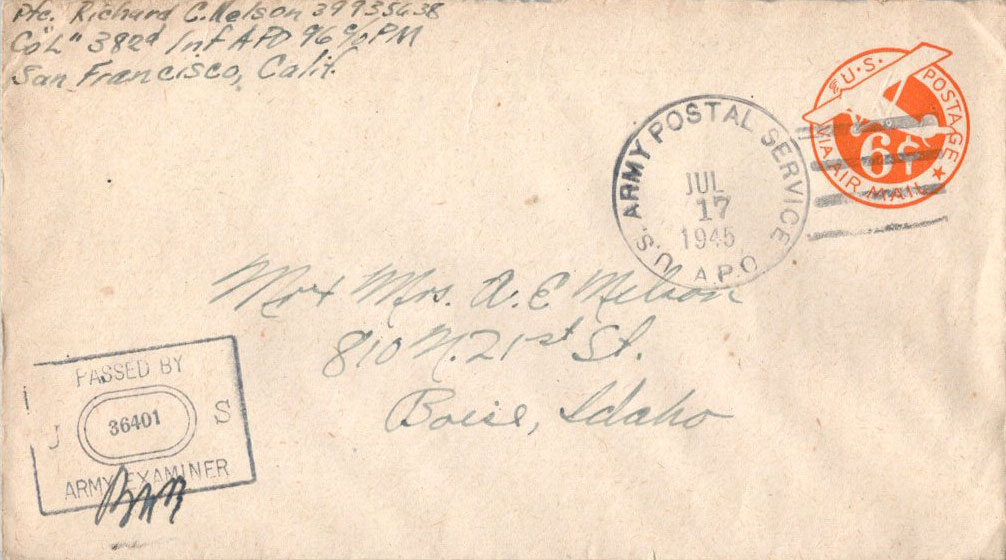 Pfc. Richard C. Nelson 39935638
Co "L" 382d Inf APO 96 c/o PM
San Francisco, Calif.
U.S. POSTAGE
6¢
VIA AIR MAIL
U.S. ARMY POSTAL SERVICE
JUL
17
1945
A.P.O.
Mr & Mrs. A. E Nelson
810 N. 21st St.
Boise, Idaho
PASSED BY
U 36401 S
ARMY EXAMINER